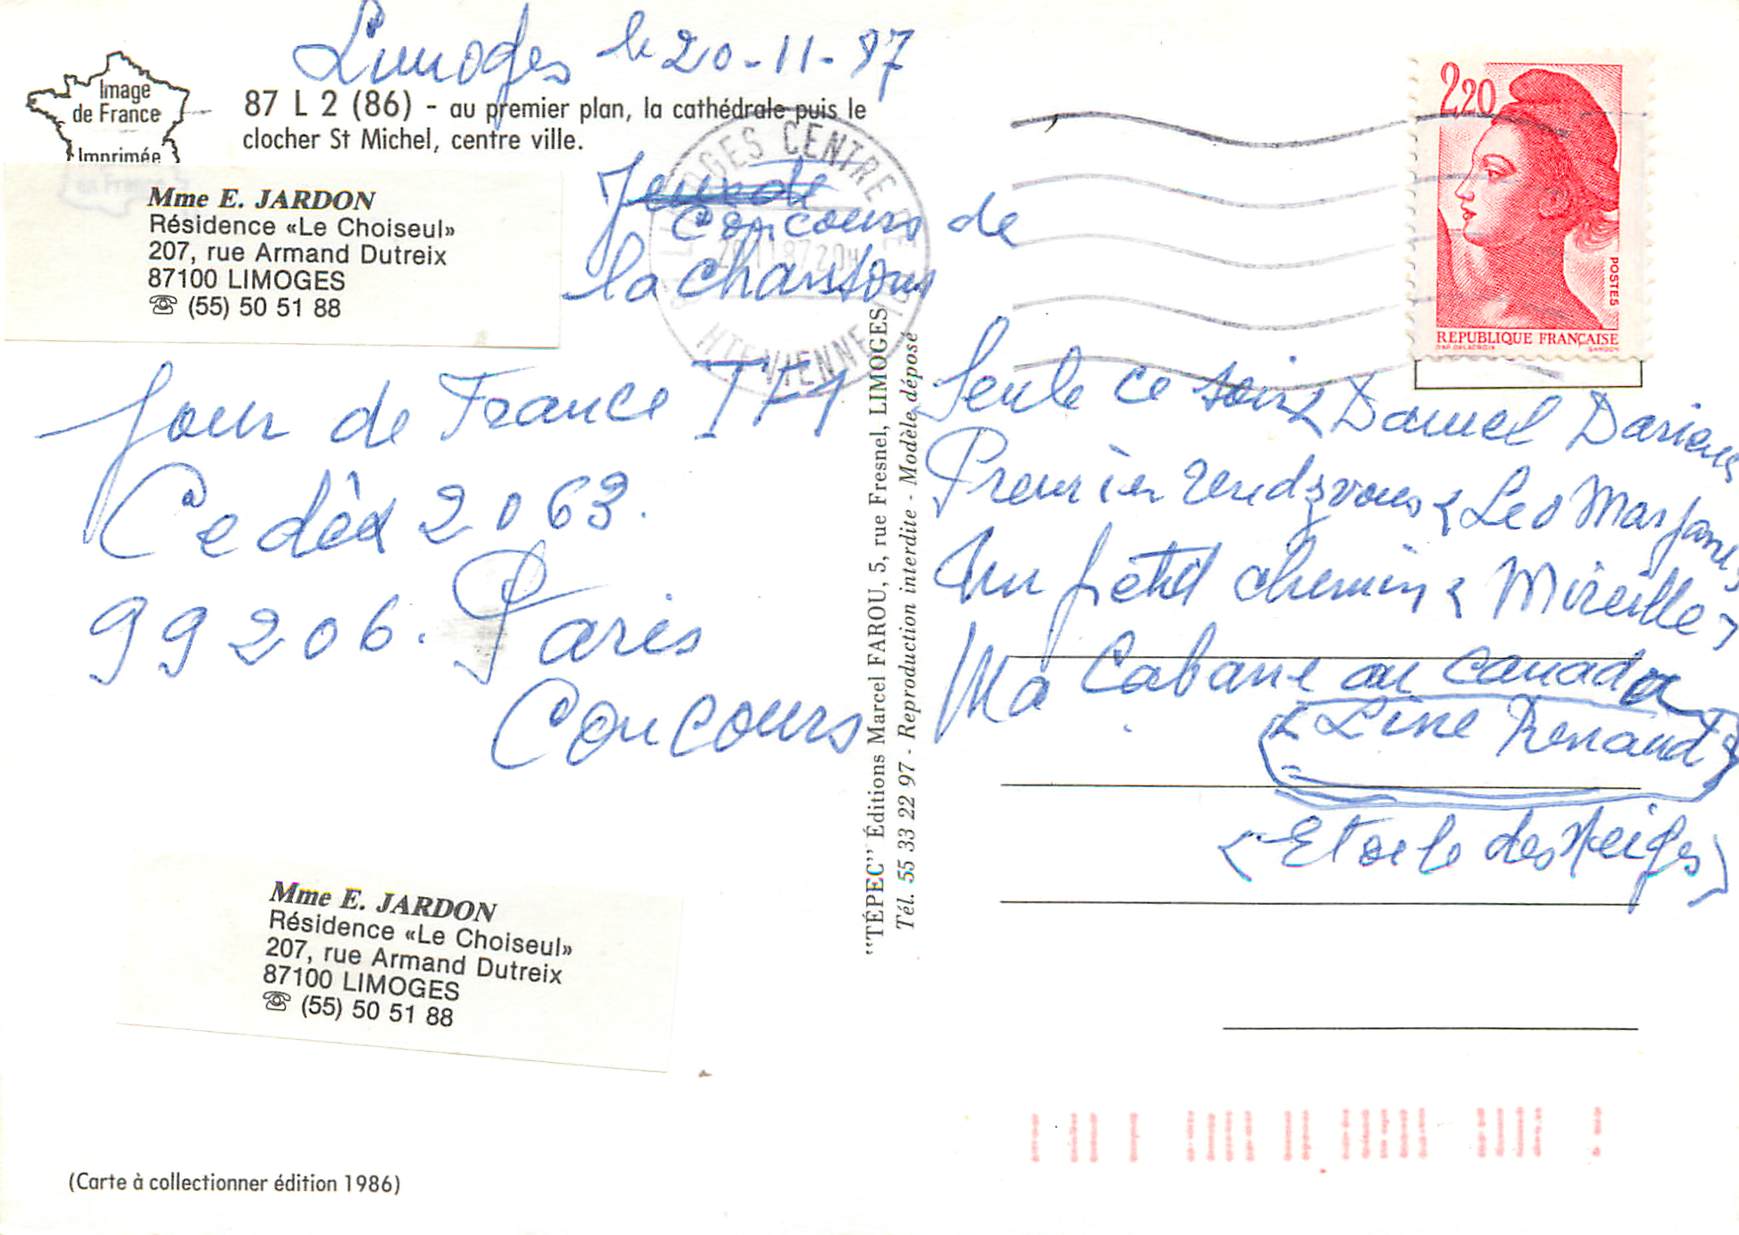 Limoges le 20-11-87
Image
de France
Imprimée
en France
87 L 2 (86) - au premier plan, la cathédrale puis le
clocher St Michel, centre ville.
Mme E. JARDON
Résidence «Le Choiseul»
207, rue Armand Dutreix
87100 LIMOGES
☎ (55) 50 51 88
Concours de
la chanson
LIMOGES CENTRE
20 11 87 20H
HTE VIENNE
2,20
POSTES
REPUBLIQUE FRANÇAISE
Jour de France TF1
Cedèx 2063.
99206. Paris
Concours
Seule ce soir < Daniel Darieux
Premier rendzvous < Leo Marjane>
Un petit chemin < Mireille>
Ma Cabane au canada
< Line Renaud>
(Etoile des Neiges)
"TÉPEC" Éditions Marcel FAROU, 5, rue Fresnel, LIMOGES
Tél. 55 33 22 97 - Reproduction interdite - Modèle déposé
Mme E. JARDON
Résidence «Le Choiseul»
207, rue Armand Dutreix
87100 LIMOGES
☎ (55) 50 51 88
(Carte à collectionner édition 1986)